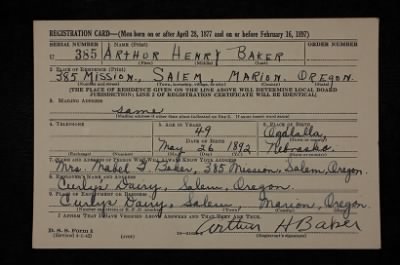 REGISTRATION CARD—(Men born on or after April 28, 1877 and on or before February 16, 1897)
SERIAL NUMBER 1. NAME (Print) ORDER NUMBER
U 385 ARTHUR HENRY BAKER
(First) (Middle) (Last)
2. PLACE OF RESIDENCE (Print)
385 MISSION, SALEM, MARION, OREGON.
(Number and street) (Town, township, village, or city) (County) (State)
[THE PLACE OF RESIDENCE GIVEN ON THE LINE ABOVE WILL DETERMINE LOCAL BOARD
JURISDICTION; LINE 2 OF REGISTRATION CERTIFICATE WILL BE IDENTICAL]
3. MAILING ADDRESS
Same
[Mailing address if other than place indicated on line 2. If same insert word same]
4. TELEPHONE 5. AGE IN YEARS 6. PLACE OF BIRTH
49 Ogallalla,
DATE OF BIRTH
May 26 1892 Nebraska
7. NAME AND ADDRESS OF PERSON WHO WILL ALWAYS KNOW YOUR ADDRESS
Mrs. Mabel Baker, 385 Mission, Salem, Oregon.
8. EMPLOYER'S NAME AND ADDRESS
Curlys Dairy, Salem, Oregon.
9. PLACE OF EMPLOYMENT OR BUSINESS
Curlys Dairy, Salem, Marion, Oregon.
I AFFIRM THAT I HAVE VERIFIED ABOVE ANSWERS AND THAT THEY ARE TRUE.
D. S. S. Form 1
(Revised 4-1-42) Arthur H Baker
(Registrant's signature)